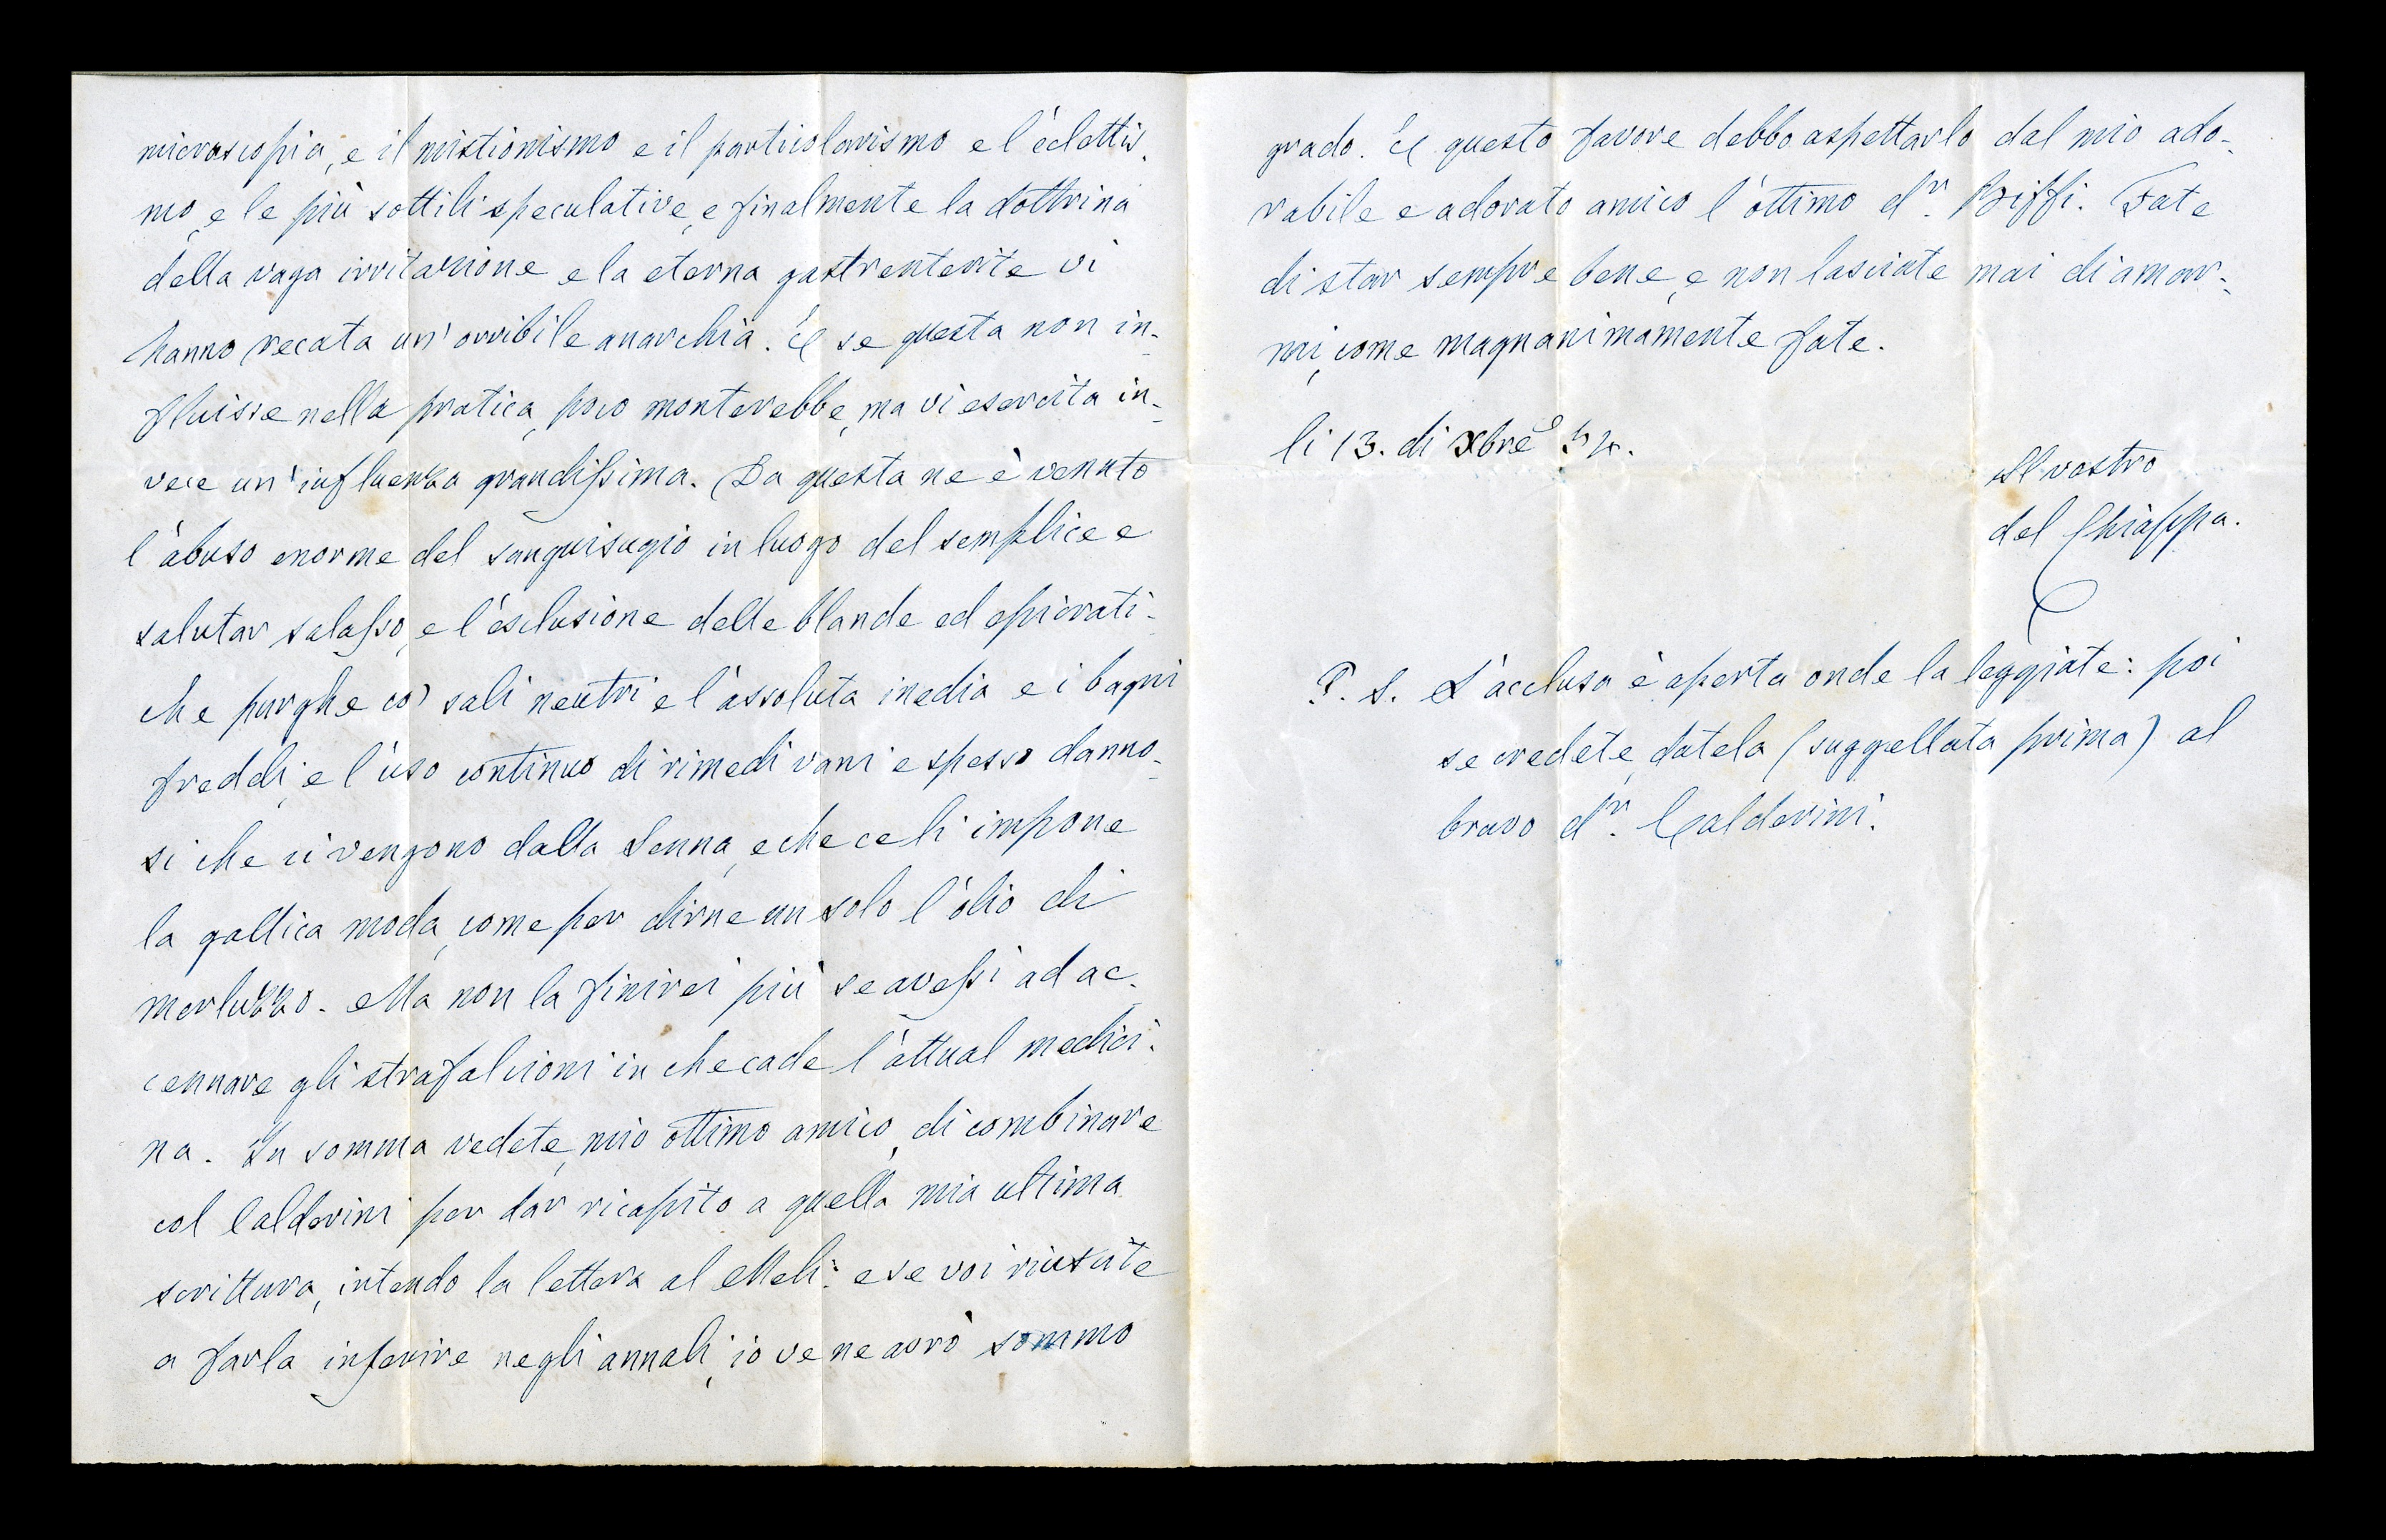 microscopia, e il mistionismo e il particolarismo e l'eclettis-
mo, e le più sottili speculative, e finalmente la dottrina
della vaga irritazione e la eterna gastrenterite vi
hanno recata un'orribile anarchia. E se questa non in-
fluisse nella pratica, poco monterebbe, ma vi esercita in-
vece un'influenza grandissima. Da questa ne è venuto
l'abuso enorme del sanguisugio in luogo del semplice e
salutar salasso, e l'esclusione delle blande ed epicrati-
che purghe co' sali neutri e l'assoluta inedia e i bagni
freddi, e l'uso continuo di rimedi vani e spesso danno-
si che ci vengono dalla Senna, e che ce li impone
la gallica moda, come per dirne un solo l'olio di
merluzzo. Ma non la finirei più se avessi ad ac-
cennare gli strafalcioni in che cade l'attual medici-
na. In somma vedete, mio ottimo amico, di combinare
col Calderini per dar ricapito a quella mia ultima
scrittura, intendo la lettera al Meli: e se voi riuscite
a farla inserire negli annali, io ve ne avrò sommo
grado. E questo favore debbo aspettarlo dal mio ado-
rabile e adorato amico l'ottimo dr. Biffi. Fate
di star sempre bene, e non lasciate mai di amar-
mi, come magnanimamente fate.
li 13. di Xbre 54.
Il vostro
del Chiappa.
P. S. L'acclusa è aperta onde la leggiate: poi
se credete, datela (suggellata prima) al
bravo dr. Calderini.